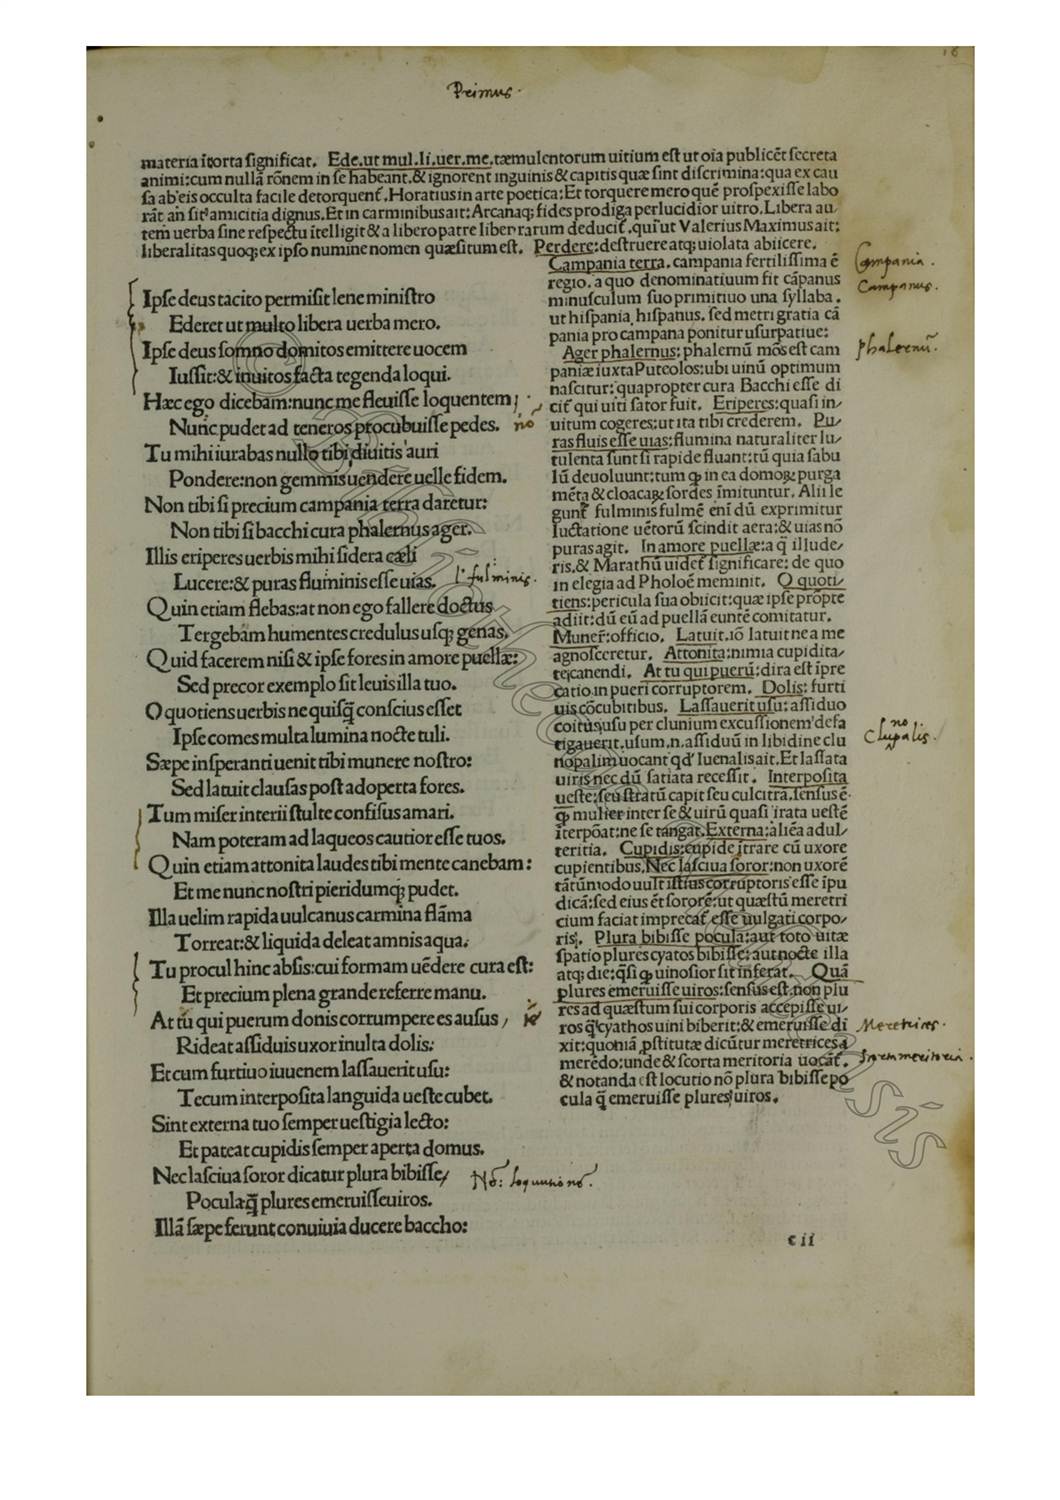 16
Primus.
materia ītorta ſignificat. Ede.ut mul.li.uer.me.tæmulentorum uitium eſt ut oīa publicēt ſecreta
animi:cum nullā rōnem in ſe habeant.& ignorent inguinis & capitis quæ ſint diſcrimina:qua ex cau
ſa ab'eis occulta facile detorquent̄.Horatius in arte poetica:Et torquere mero quē proſpexiſſe labo
rāt an ſit amicitia dignus.Et in carminibus ait:Arcanaq; fides prodiga perlucidior uitro.Libera au/
tem uerba ſine reſpectu ītelligit & a libero patre liber rarum deducit̄.qui ut Valerius Maximus ait:
liberalitas quoq; ex ipſo numine nomen quæſitum eſt. Perdere:deſtruere atq; uiolata abiicere.
Ipſe deus tacito permiſit lene miniſtro
Ederet ut multo libera uerba mero.
Ipſe deus ſomno domitos emittere uocem
Iuſſit:& inuitos facta tegenda loqui.
Hæc ego dicebam:nunc me fleuiſſe loquentem;
Nunc pudet ad teneros procubuiſſe pedes. no
Tu mihi iurabas nullo tibi diuitis auri
Pondere:non gemmis uendere uelle fidem.
Non tibi ſi precium campania terra daretur:
Non tibi ſi bacchi cura phalernus ager.
Illis eriperes uerbis mihi ſidera cæli
Lucere:& puras fluminis eſſe uias. l. fulminis.
Quin etiam flebas:at non ego fallere doctus
Tergebam humentes credulus uſq; genas.
Quid facerem niſi & ipſe fores in amore puellæ:
Sed precor exemplo ſit leuis illa tuo.
O quotiens uerbis ne quiſq̄ conſcius eſſet
Ipſe comes multa lumina nocte tuli.
Sæpe inſperanti uenit tibi munere noſtro:
Sed latuit clauſas poſt adoperta fores.
Tum miſer interii ſtulte confiſus amari.
Nam poteram ad laqueos cautior eſſe tuos.
Quin etiam attonita laudes tibi mente canebam:
Et me nunc noſtri pieridumq; pudet.
Illa uelim rapida uulcanus carmina flāma
Torreat:& liquida deleat amnis aqua.
Tu procul hinc abſis:cui formam uēdere cura eſt:
Et precium plena grande referre manu.
At tū qui puerum donis corrumpere es auſus /
Rideat aſſiduis uxor inulta dolis:
Et cum furtiuo iuuenem laſſauerit uſu:
Tecum interpoſita languida ueſte cubet.
Sint externa tuo ſemper ueſtigia lecto:
Et pateat cupidis ſemper aperta domus.
Nec laſciua ſoror dicatur plura bibiſſe/
Pocula:q̄ plures emeruiſſe uiros.
Illā ſæpe ferunt conuiuia ducere baccho:
Campania terra. campania fertiliſſima ē
regio. a quo denominatiuum fit cāpanus
minuſculum ſuo primitiuo una ſyllaba.
ut hiſpania hiſpanus. ſed metri gratia cā
pania pro campana ponitur uſurpatiue:
Ager phalernus: phalernū mōs eſt cam
paniæ iuxta Puteolos:ubi uinū optimum
naſcitur:quapropter cura Bacchi eſſe di
cit̄ qui uiti ſator fuit. Eriperes:quaſi in/
uitum cogeres:ut ita tibi crederem. Pu/
ras fluīs eſſe uias:flumina naturaliter lu/
tulenta ſunt ſi rapide fluant:tū quia ſabu
lū deuoluunt:tum q in ea domoꝝ purga
mēta & cloacaꝝ ſordes īmituntur. Alii le
gunt fulminis fulmē enī dū exprimitur
luctatione uētorū ſcindit aera:& uias nō
puras agit. In amore puellæ:a q̄ illude/
ris.& Marathū uidet̄ ſignificare: de quo
in elegia ad Pholoē meminit. O quoti/
tiens:pericula ſua obiicit:quæ ipſe prōpte
adiit:dū eū ad puellā euntē comitatur.
Muner̄:officio. Latuit.iō latuit ne a me
agnoſceretur. Attonita:nimia cupidita/
te canendi. At tu qui puerū:dira eſt īpre
catio in pueri corruptorem. Dolis: furti
uis cōcubitibus. Laſſauerit uſu: aſſiduo
coitus uſu per clunium excuſſionem defa
tigauerit.uſum.n.aſſiduū in libidine clu
nopalim uocant qd' Iuenalis ait.Et laſſata
uiris nec dū ſatiata receſſit. Interpoſita
ueſte:ſeu ſtratū capit ſeu culcitra.ſenſus ē
q mulier inter ſe & uirū quaſi irata ueſtē
īterpōat:ne ſe tangat.Externa:aliēa adul/
teritia. Cupidis:cupide ītrare cū uxore
cupientibus.Nec laſciua ſoror:non uxorē
tātūmodo uult iſtius corruptoris eſſe īpu
dicā:ſed eius ēt ſororē:ut quæſtū meretri
cium faciat imprecat̄ eſſe uulgati corpo/
ris. Plura bibiſſe pocula:aut toto uitæ
ſpatio plures cyatos bibiſſe: aut nocte illa
atq; die:q̄ſi q uinoſior ſit inferat. Quā
plures emeruiſſe uiros:ſenſus eſt.non plu
res ad quæſtum ſui corporis accepiſſe ui/
ros q̄ cyathos uini biberit:& emeruiſſe di
xit:quoniā pſtitutæ dicūtur meretrices a
merēdo:unde & ſcorta meritoria uocāt̄.
& notanda eſt locutio nō plura bibiſſe po
cula q̄ emeruiſſe plures uiros.
Campania.
Campanus.
phalernū.
no
Clupalis.
Meretrices.
Scorta meritoria.
No: loquutionē.
c ii